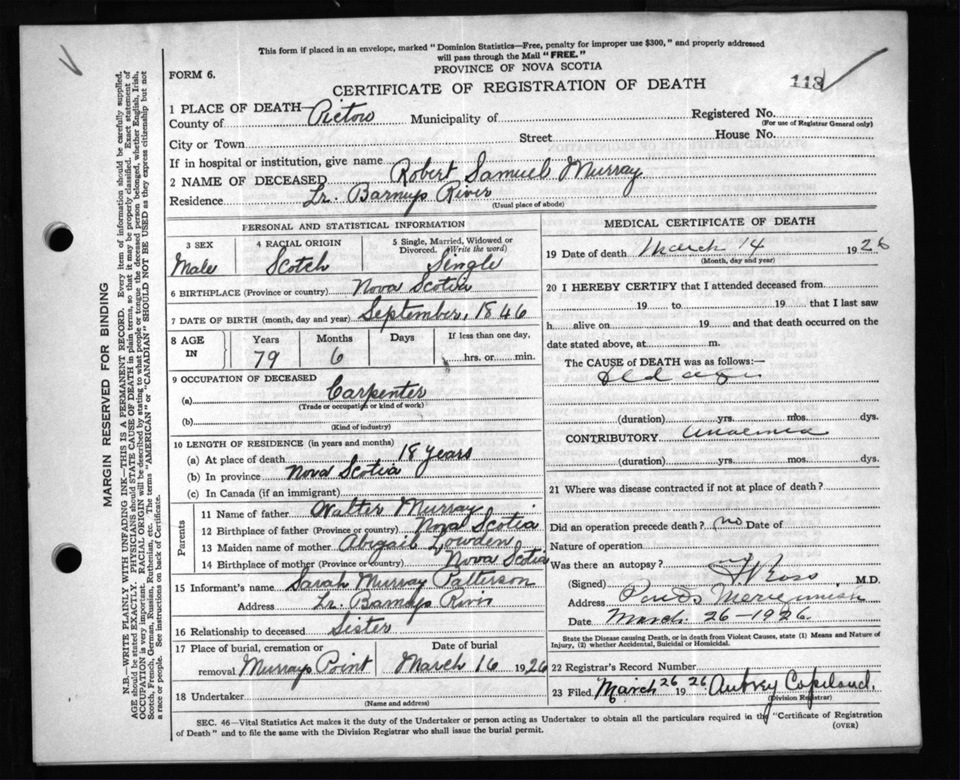 This form if placed in an envelope, marked "Dominion Statistics—Free, penalty for improper use $300," and properly addressed
will pass through the Mail "FREE."
PROVINCE OF NOVA SCOTIA
FORM 6.
CERTIFICATE OF REGISTRATION OF DEATH
118
1 PLACE OF DEATH—
County of Pictou Municipality of Registered No.
(For use of Registrar General only)
City or Town Street House No.
If in hospital or institution, give name
2 NAME OF DECEASED Robert Samuel Murray
Residence Lr. Barneys River
(Usual place of abode)
PERSONAL AND STATISTICAL INFORMATION
3 SEX 4 RACIAL ORIGIN 5 Single, Married, Widowed or Divorced. (Write the word)
Male Scotch Single
6 BIRTHPLACE (Province or country) Nova Scotia
7 DATE OF BIRTH (month, day and year) September, 1846
8 AGE IN Years Months Days If less than one day,
79 6 hrs. or min.
9 OCCUPATION OF DECEASED
(a) Carpenter
(Trade or occupation or kind of work)
(b)
(Kind of industry)
10 LENGTH OF RESIDENCE (in years and months)
(a) At place of death 18 years
(b) In province Nova Scotia
(c) In Canada (if an immigrant)
Parents
11 Name of father Walter Murray
12 Birthplace of father (Province or country) Nova Scotia
13 Maiden name of mother Abigail Lowden
14 Birthplace of mother (Province or country) Nova Scotia
15 Informant's name Sarah Murray Patterson
Address Lr. Barneys River
16 Relationship to deceased Sister
17 Place of burial, cremation or removal Date of burial
Murrays Point March 16 1926
18 Undertaker
(Name and address)
MEDICAL CERTIFICATE OF DEATH
19 Date of death March 14 1926
(Month, day and year)
20 I HEREBY CERTIFY that I attended deceased from
19 to 19 that I last saw
h alive on 19 and that death occurred on the
date stated above, at m.
The CAUSE of DEATH was as follows:—
Old age
(duration) yrs. mos. dys.
CONTRIBUTORY Anaemia
(duration) yrs. mos. dys.
21 Where was disease contracted if not at place of death?
Did an operation precede death? no Date of
Nature of operation
Was there an autopsy?
(Signed) Ross M.D.
Address
Date March 26—1926.
State the Disease causing Death, or in death from Violent Causes, state (1) Means and Nature of
Injury, (2) whether Accidental, Suicidal or Homicidal.
22 Registrar's Record Number
23 Filed March 26 1926 Aubrey Copeland
(Division Registrar)
SEC. 46—Vital Statistics Act makes it the duty of the Undertaker or person acting as Undertaker to obtain all the particulars required in the "Certificate of Registration
of Death" and to file the same with the Division Registrar who shall issue the burial permit.
(OVER)
MARGIN RESERVED FOR BINDING
N.B.—WRITE PLAINLY WITH UNFADING INK—THIS IS A PERMANENT RECORD. Every item of information should be carefully supplied.
AGE should be stated EXACTLY. PHYSICIANS should STATE CAUSE OF DEATH in plain terms, so that it may be properly classified. Exact statement of
OCCUPATION is very important. RACIAL ORIGIN will be described by stating to what people or tongue the deceased person belonged, whether English, Irish,
Scotch, French, German, Russian, Ruthenian, etc. The terms "AMERICAN" or "CANADIAN" SHOULD NOT BE USED as they express citizenship but not
a race or people. See instructions on back of Certificate.